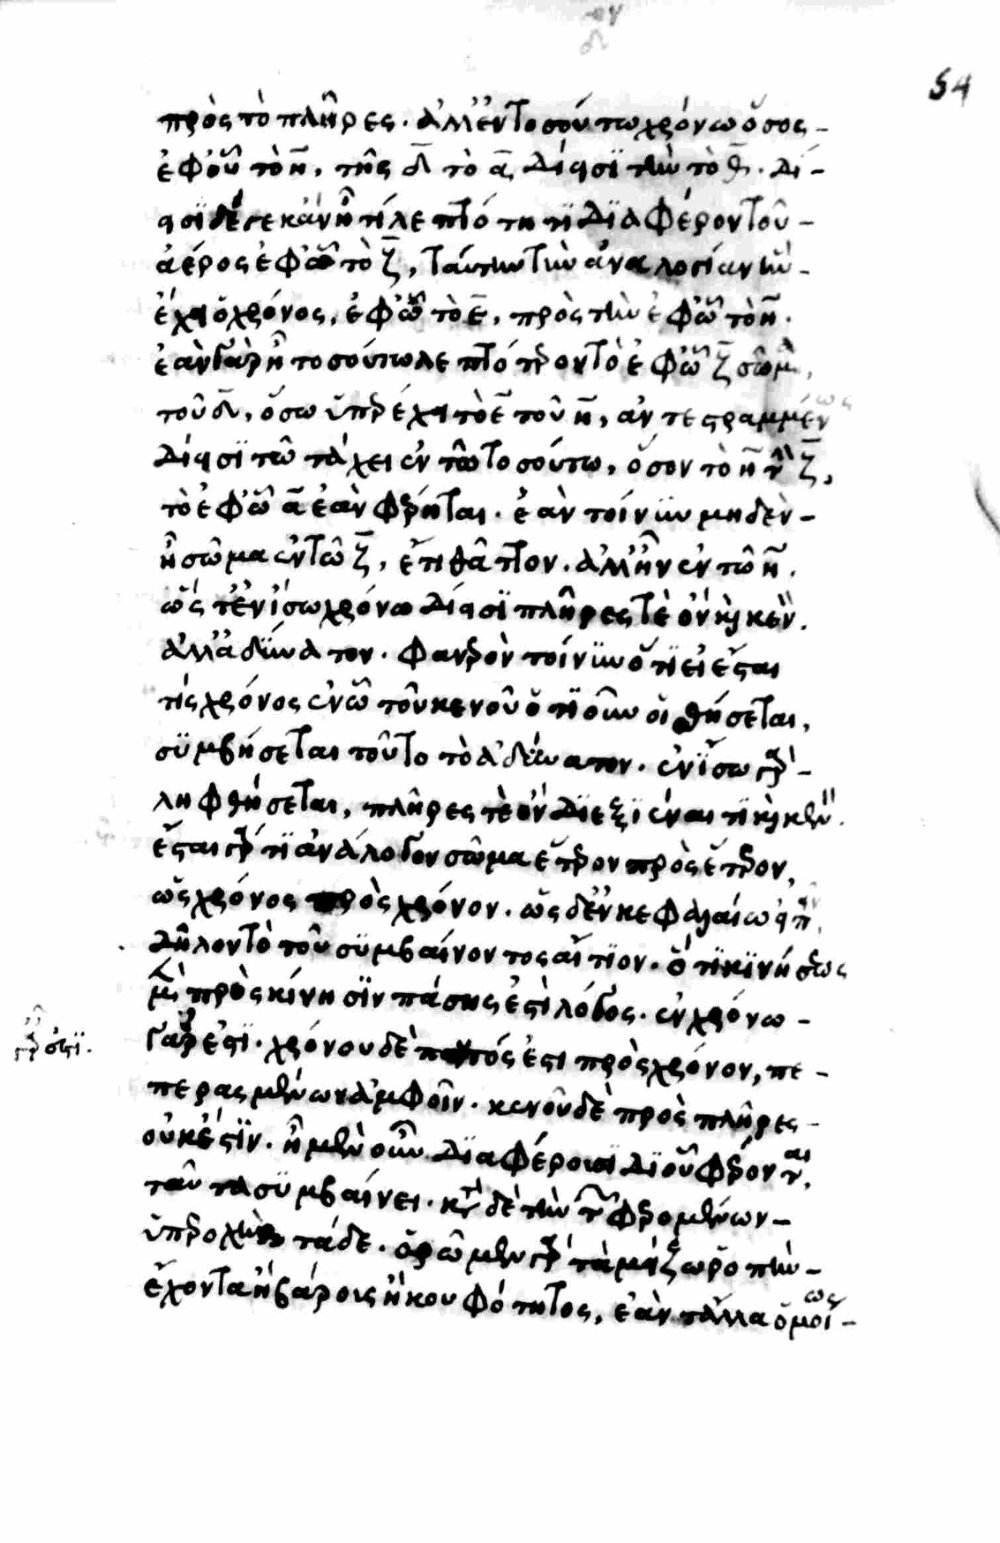 54
πρὸς τὸ πλῆρες. ἀλλ' ἐν τοσούτω χρόνω ὅσος
ἐφ' οὗ τὸ η, τῆς δ τὸ α δίεισι τὴν τὸ θ. δί-
εισι δέ γε κἂν ᾖ τι λεπτότητι διαφέρον τοῦ
ἀέρος ἐφ' ὧ τὸ ζ, ταύτην τὴν ἀναλογίαν ἣν
ἔχει ὁ χρόνος, ἐφ' ὧ τὸ ε, πρὸς τὸν ἐφ' ὧ τὸ η.
ἐὰν γὰρ ᾖ τοσούτω λεπτότερον τὸ ἐφ' ὧ ζ σῶμα,
τοῦ δ, ὅσω ὑπερέχει τὸ ε τοῦ η, ἀντεστραμμένως
δίεισι τῶ τάχει ἐν τῶ τοσούτω, ὅσον τὸ η τὴν ζ,
τὸ ἐφ' ὧ α ἐὰν φέρηται. ἐὰν τοίνυν μηδὲν
ᾖ σῶμα ἐν τῶ ζ, ἔτι θᾶττον. ἀλλ' ἦν ἐν τῶ η.
ὥστ' ἐν ἴσω χρόνω δίεισι πλῆρές τε ὂν καὶ κενόν.
ἀλλ' ἀδύνατον. φανερὸν τοίνυν ὅτι εἰ ἔσται
τις χρόνος ἐν ὧ τοῦ κενοῦ ὁτιοῦν οἰσθήσεται,
συμβήσεται τοῦτο τὸ ἀδύνατον. ἐν ἴσω γὰρ
ληφθήσεται, πλῆρές τε ὂν διεξιέναι τι καὶ κενόν.
ἔσται γάρ τι ἀνάλογον σῶμα ἕτερον πρὸς ἕτερον,
ὡς χρόνος πρὸς χρόνον. ὡς δ' ἐν κεφαλαίω εἰπεῖν,
δῆλον τὸ τοῦ συμβαίνοντος αἴτιον. ὅτι κινήσεως
μὲν πρὸς κίνησιν πάσης ἐστὶ λόγος. ἐν χρόνω
γάρ ἐστι. χρόνου δὲ παντός ἐστι πρὸς χρόνον, πε-
περασμένων ἀμφοῖν. κενοῦ δὲ πρὸς πλῆρες
οὐκ ἔστιν. ᾗ μὲν οὖν διαφέρουσι δι' οὗ φέρονται,
ταῦτα συμβαίνει. κατὰ δὲ τὴν τῶν φερομένων
ὑπεροχὴν τάδε. ὁρῶμεν γὰρ τὰ μείζω ῥοπὴν
ἔχοντα ἢ βάρους ἢ κουφότητος, ἐὰν τἄλλα ὁμοίως